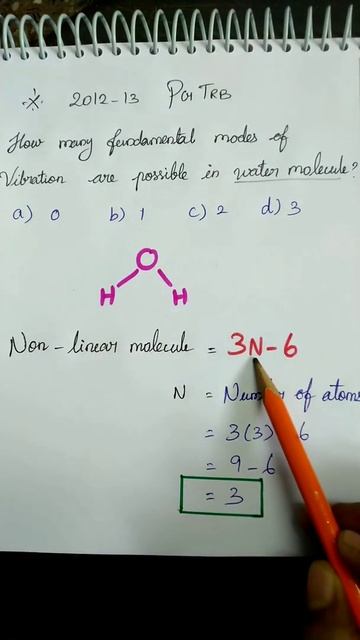 2012-13 PG TRB
How many fundamental modes of
Vibration are possible in water molecule?
a) 0 b) 1 c) 2 d) 3
O
H H
Non-linear molecule = 3N-6
N = Number of atoms
= 3(3) 6
= 9-6
= 3